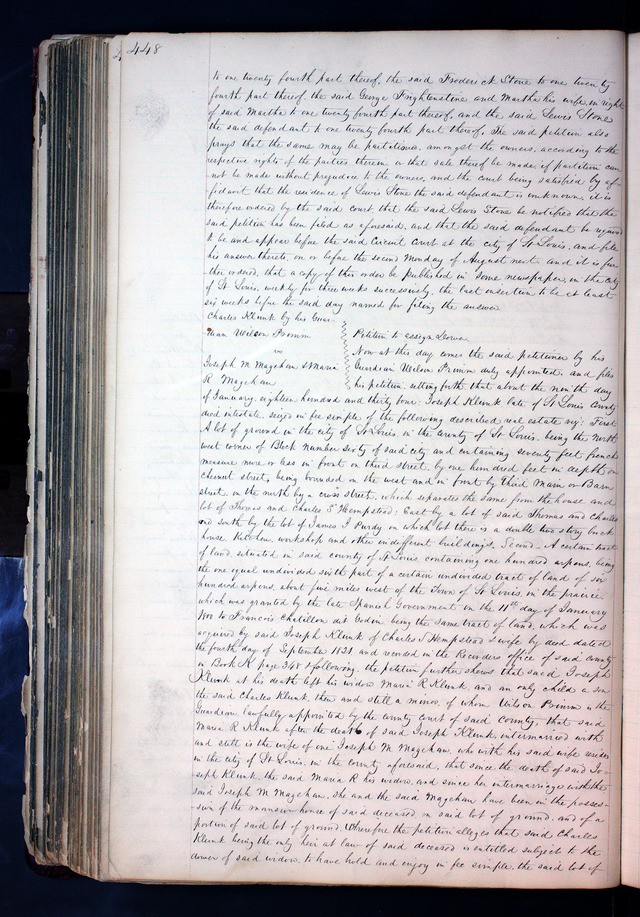 448
to one twenty fourth part thereof, the said Frederick Stone to one twenty
fourth part thereof, the said George Frightenstine and Martha his wife, in right
of said Martha to one twenty fourth part thereof, and the said Lewis Stone
the said defendant to one twenty fourth part thereof, The said petition also
prays that the same may be partitiona. amongst the owners, according to the
respective rights of the parties therein or that sale thereof be made, if partition can
not be made without prejudice to the owners, and the court being satisfied by af-
fidavit that the residence of Lewis Stone the said defendant is unknown, it is
therefore ordered by the said court that the said Lewis Stone be notified that the
said petition has been filed as aforesaid, and that the said defendant be required
to be and appear before the said Circuit Court at the city of St Louis, and file
his answer thereto, on or before the second Monday of August next and it is fur-
ther ordered, that a copy of this order be published in some newspaper in the city
of St Louis, weekly for three weeks successively, the last insertion to be at least
six weeks before the said day named for filing the answer
Charles Klunk by his Guar-
dian Wilson Primm
vs
Joseph M Mageham & Maria
R Mageham
Petition to assign Dower
Now at this day comes the said petitioner by his
Guardian Wilson Primm duly appointed, and files
his petition setting forth that about the ninth day
of January, eighteen hundred and thirty four, Joseph Klunk late of St Louis County
died intestate, seized in fee simple of the following described real estate viz: First
A lot of ground in the city of St Louis, in the County of St Louis, being the North
west corner of Block number sixty of said city and containing seventy feet french
measure more or less in front on third street, by one hundred feet in depth on
chesnut street, being bounded on the west and in front by third Main or Barn
street, on the north by a cross street, which separates the same from the house and
lot of Thomas and Charles S Hempstead; East by a lot of said Thomas and Charles
and south by the lot of James J Purdy, on which lot there is a double two story brick
house, Kitchen, workshop and other indifferent buildings. Second - A certain tract
of land, situated in said county of St Louis containing one hundred arpens, being
the one equal undivided sixth part of a certain undivided tract of land of six
hundred arpens, about five miles west of the Town of St Louis, in the prairie
which was granted by the late Spanish Government on the 11th day of January
1800 to Francois Chatillon dit Godin being the same tract of land, which was
acquired by said Joseph Klunk of Charles S Hempstead & wife by deed dated
the fourth day of September 1821 and recorded in the Recorders office of said county
in Book K page 348 & following. the petition further shews that said Joseph
Klunk at his death left his widow Maria R Klunk, and an only child a son
the said Charles Klunk, then and still a minor, of whom Wilson Primm is the
Guardian, lawfully appointed by the county court of said county, that said
Maria R Klunk after the death of said Joseph Klunk, intermarried with
and still is the wife of one Joseph M Mageham, who with his said wife resides
in the city of St Louis, in the county aforesaid, that since the death of said Jo-
seph Klunk, the said Maria R his widow, and since her intermarriage with the
said Joseph M Mageham, she and the said Mageham have been in the posses-
sion of the mansion house of said deceased, on said lot of ground, and of a
portion of said lot of ground. Wherefore the petition alleges that said Charles
Klunk being the only heir at law of said deceased is entitled subject to the
dower of said widow, to have hold and enjoy in fee simple, the said lot of